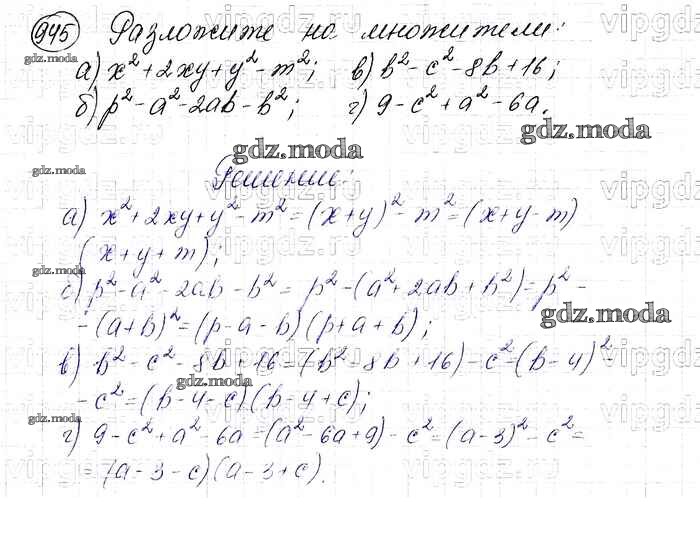 945 Разложите на множители:
а) x² + 2xy + y² - m²; в) b² - c² - 8b + 16;
б) p² - a² - 2ab - b²; г) 9 - c² + a² - 6a.
Решение:
а) x² + 2xy + y² - m² = (x + y)² - m² = (x + y - m)
(x + y + m);
б) p² - a² - 2ab - b² = p² - (a² + 2ab + b²) = p² -
- (a + b)² = (p - a - b)(p + a + b);
в) b² - c² - 8b + 16 = (b² - 8b + 16) - c² = (b - 4)² -
- c² = (b - 4 - c)(b - 4 + c);
г) 9 - c² + a² - 6a = (a² - 6a + 9) - c² = (a - 3)² - c² =
= (a - 3 - c)(a - 3 + c).
gdz.moda
vipgdz.ru